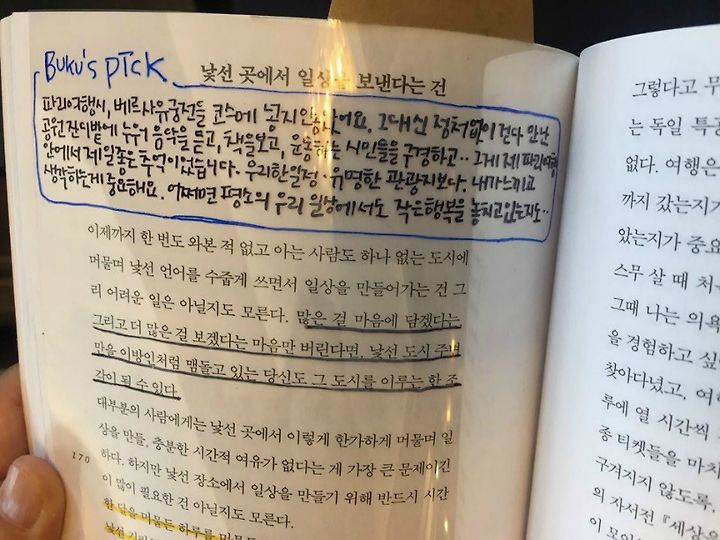 BUKU's PICK
낯선 곳에서 일상을 보낸다는 건
파리여행시, 베르사유궁전을 코스에 넣지 않았어요. 그대신 정처없이 걷다 만난
공원 잔디밭에 누워 음악을 듣고, 책을보고, 운동하는 시민들을 구경하고.. 그게 제 파리여행
안에서 제일좋은추억이었습니다.
생각하는게 중요해요. 어쩌면 평소의 우리 일상에서도 작은행복을 놓치고있는지도..
이제까지 한 번도 와본 적 없고 아는 사람도 하나 없는 도시에
머물며 낯선 언어를 수줍게 쓰면서 일상을 만들어가는 건 그
리 어려운 일은 아닐지도 모른다. 많은 걸 마음에 담겠다는
그리고 더 많은 걸 보겠다는 마음만 버린다면, 낯선 도시 주변
만을 이방인처럼 맴돌고 있는 당신도 그 도시를 이루는 한 조
각이 될 수 있다.
대부분의 사람에게는 낯선 곳에서 이렇게 한가하게 머물며 일
상을 만들, 충분한 시간적 여유가 없다는 게 가장 큰 문제이긴
하다. 하지만 낯선 장소에서 일상을 만들기 위해 반드시 시간
이 많이 필요한 건 아닐지도 모른다.
한 달을 머물든 하루를 머물든
170
그렇다고 무
는 독일 특
없다. 여행은
까지 갔는지가
았는지가 중요
스무 살 때 처
그때 나는 의욕
을 경험하고 싶
찾아다녔고, 여
루에 열 시간씩
종 티켓들을 마치
구겨지지 않도록,
의 자서전 『세상으
이 모인